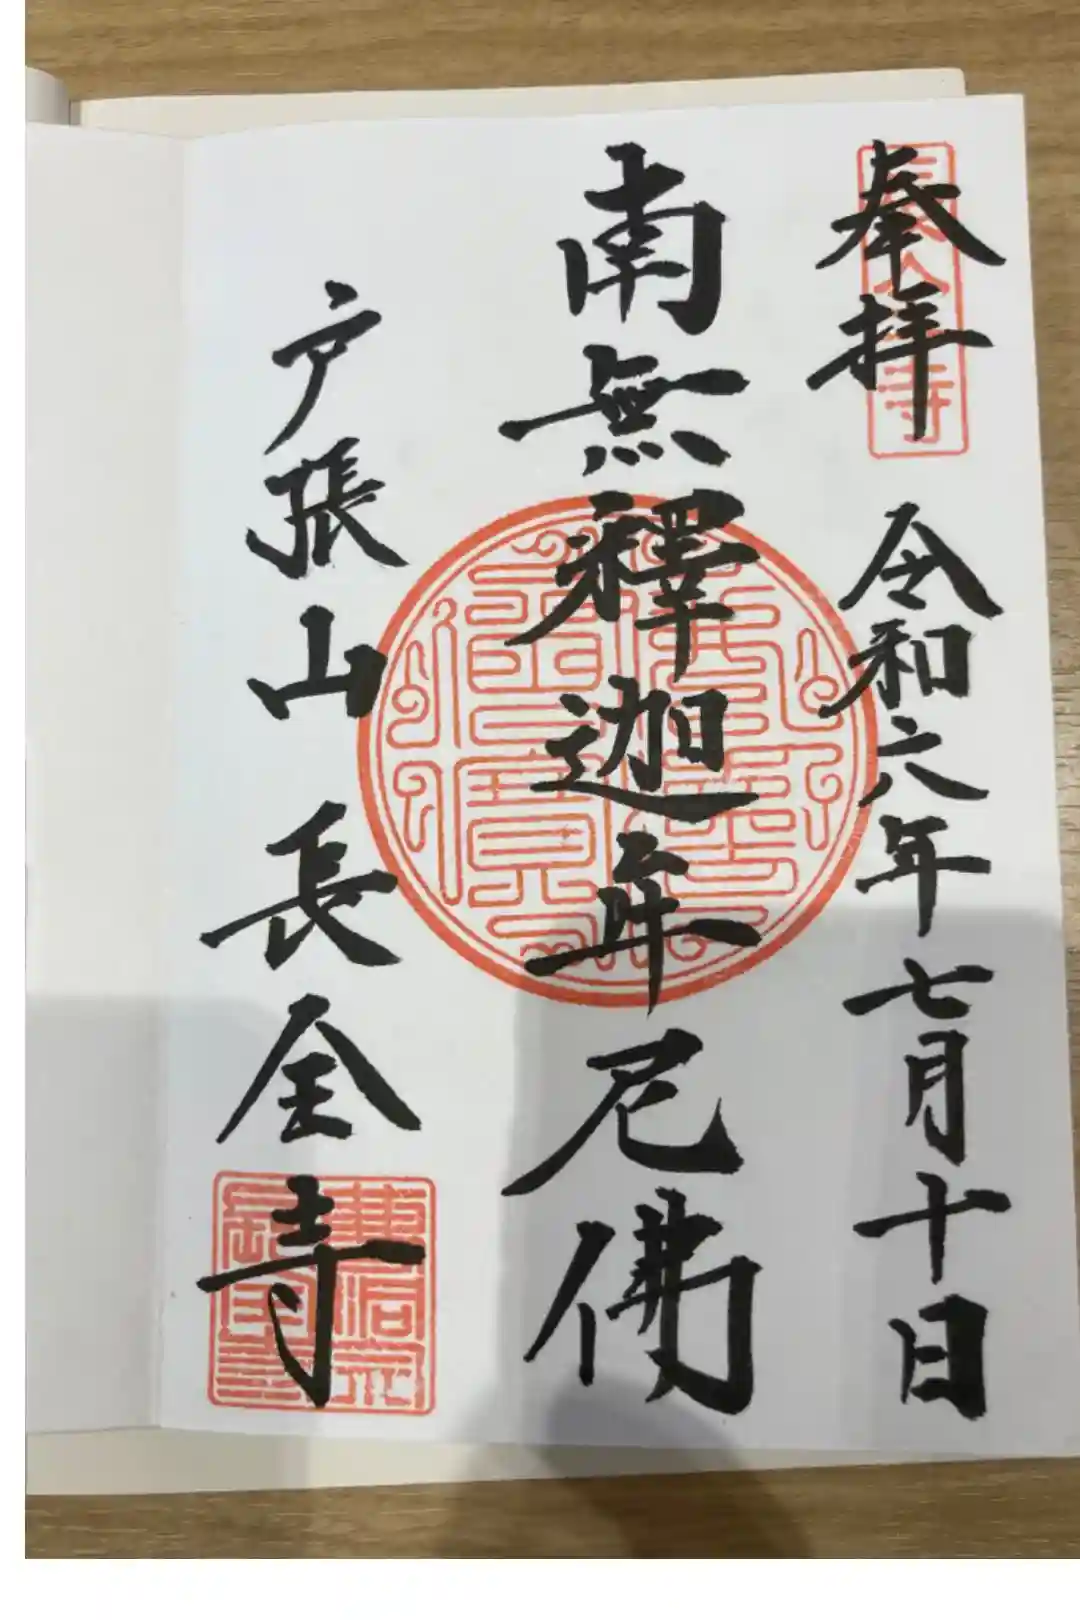 奉拝
令和六年七月十日
南無釋迦牟尼佛
戸張山
長全寺
長全寺